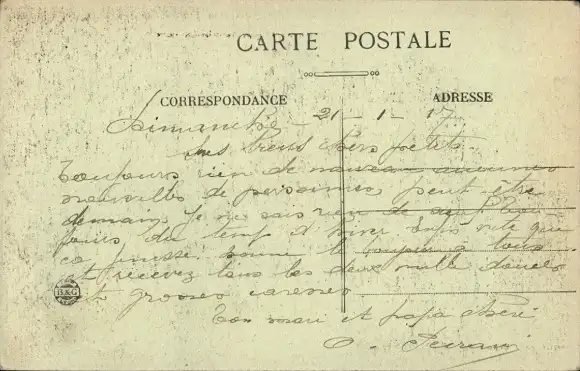 CARTE POSTALE
CORRESPONDANCE
ADRESSE
Dimanche - 21 - 1 - 17
Mes biens chers petits.
Toujours rien de nouveau aucunes
nouvelles de personnes, peut-être
demain, je ne sais rien de
du temps d'hiver
ça finisse. bonne à tous
et recevez tous les deux mille douces
et grosses caresses
Ton mari et papa chéri
B&G